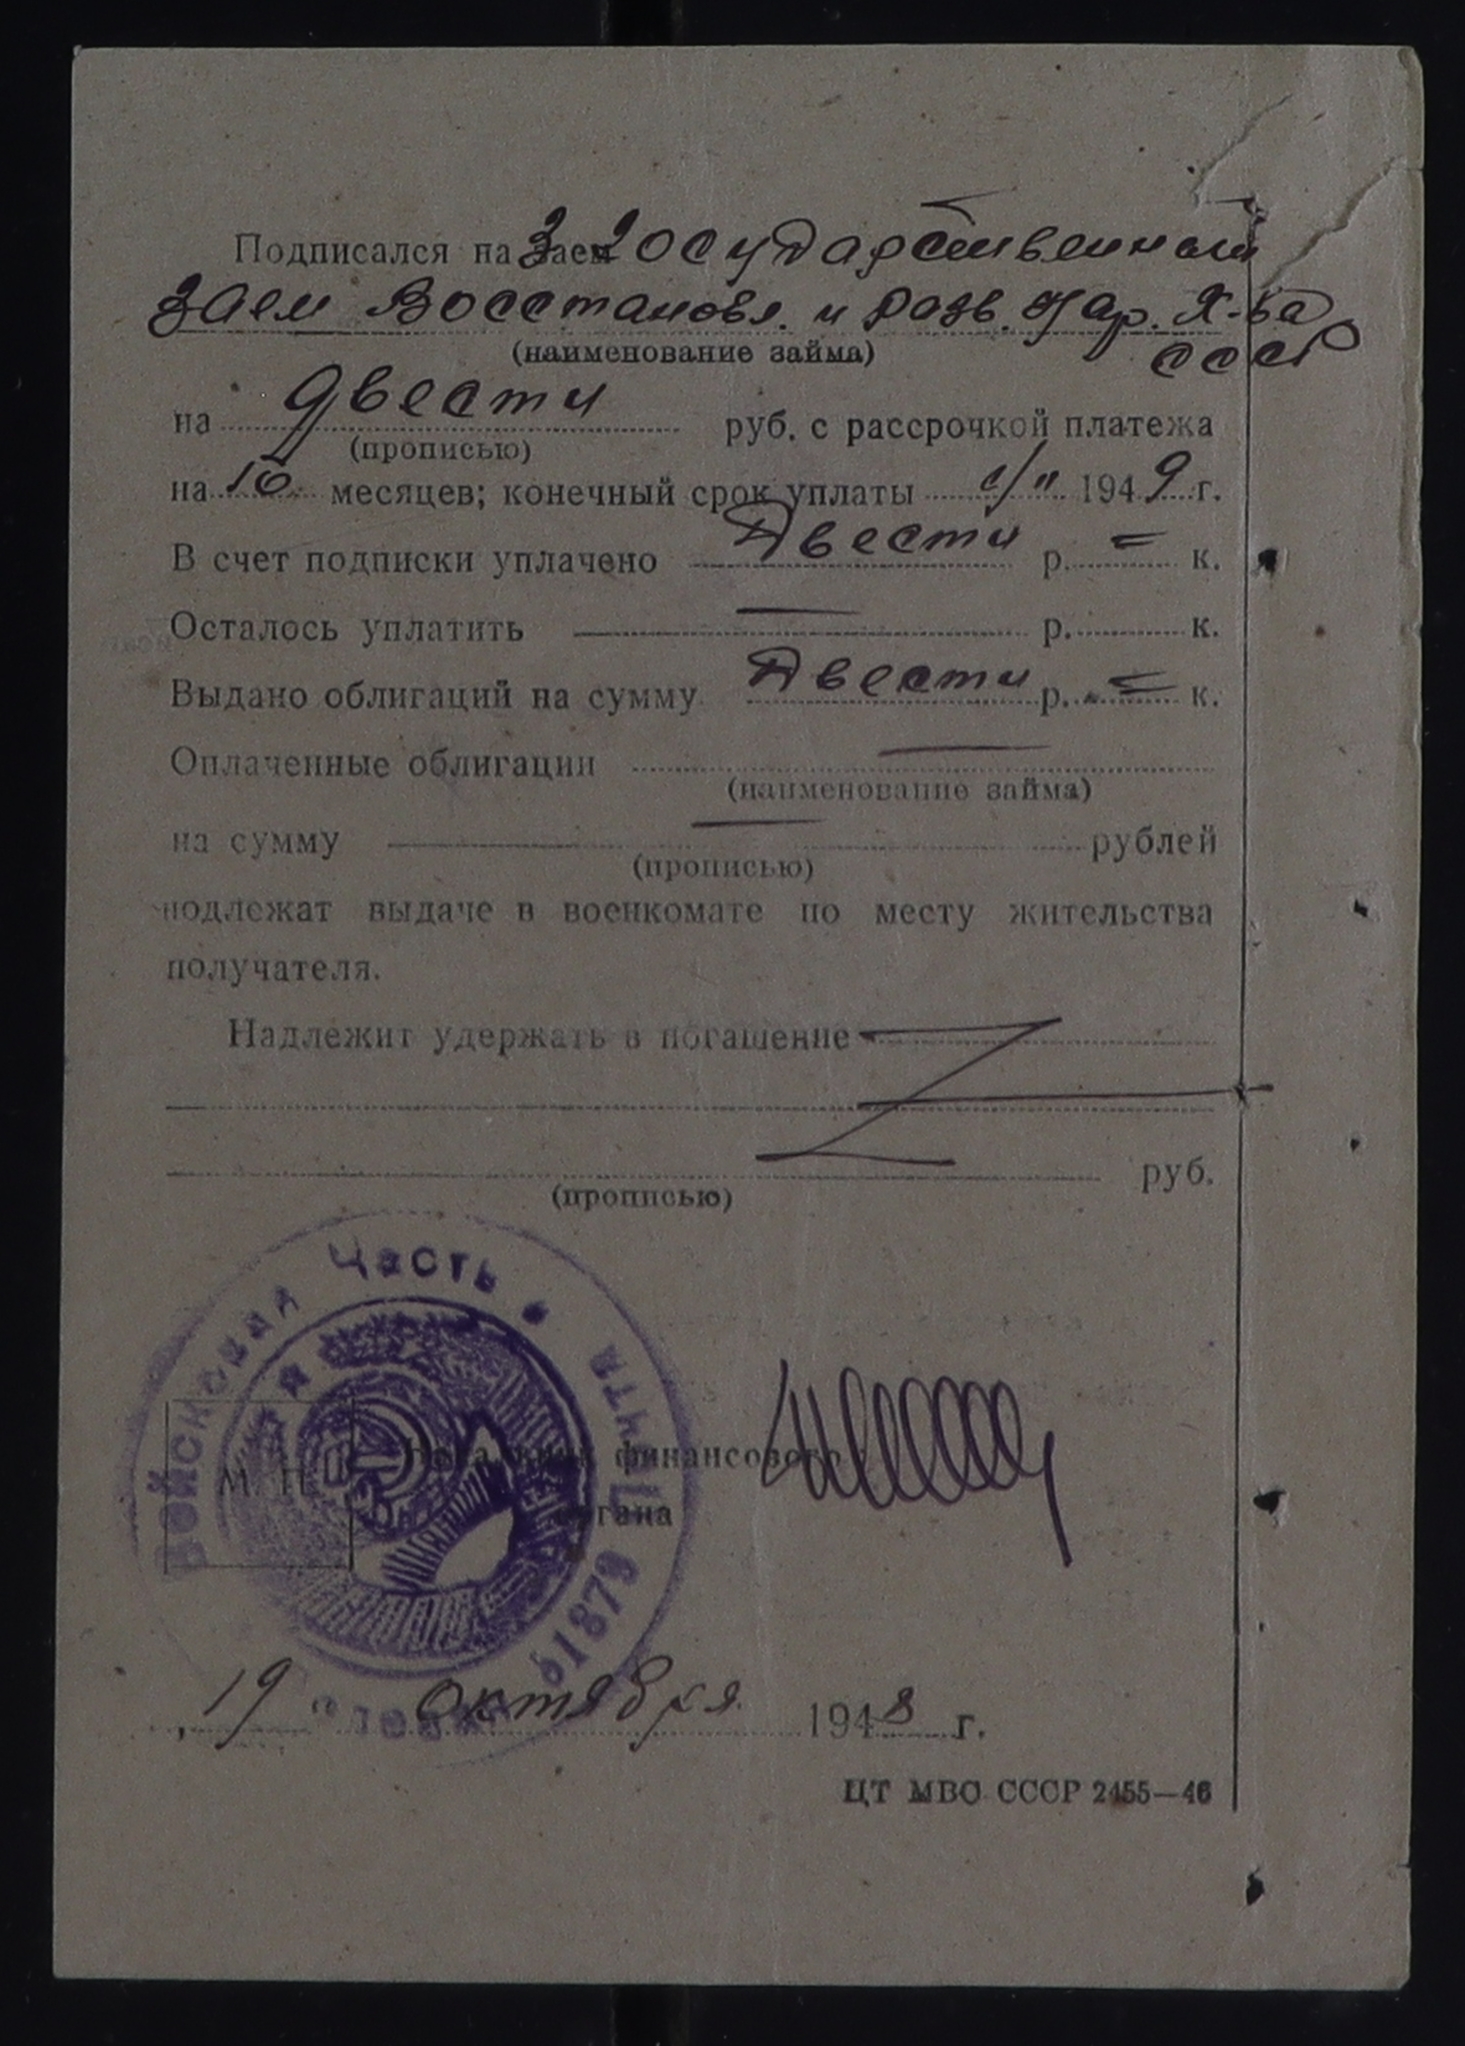 Подписался на заем 3 Государственный
заем Восстановл. и разв. Нар. Х-ва
СССР
(наименование займа)
на двести руб. с рассрочкой платежа
(прописью)
на 10 месяцев; конечный срок уплаты 1949 г.
В счет подписки уплачено Двести р. = к.
Осталось уплатить — р. к.
Выдано облигаций на сумму Двести р. = к.
Оплаченные облигации —
(наименование займа)
на сумму — рублей
(прописью)
подлежат выдаче в военкомате по месту жительства
получателя.
Надлежит удержать в погашение
руб.
(прописью)
Войсковая часть • Полевая почта 61879
М. П.
Начальник финансового
органа
19 октября 1948 г.
ЦТ МВС СССР 2455—46